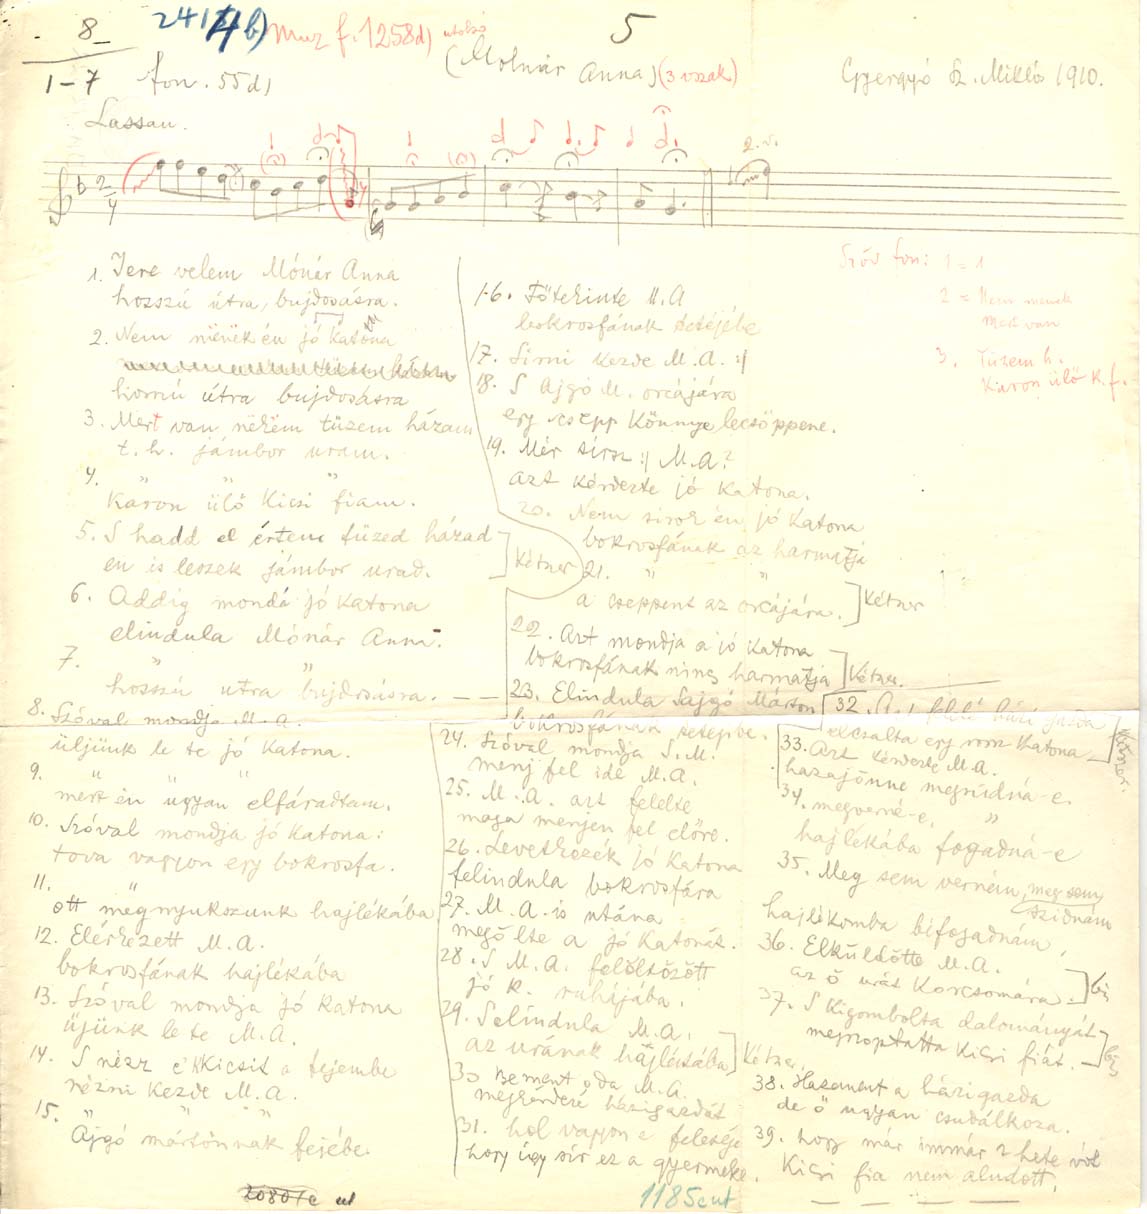 8
241/4 b) Muz f. 1258d) utolsó
5
1-7 fon. 55d)
(Molnár Anna) (3 vszak)
Gyergyó Sz. Miklós 1910.
Lassan.
2/4
2. v.
1. Jere velem Mónár Anna
hosszú útra, bujdosásra.
2. Nem menek én jó katona
hosszú útra bujdosásra
3. Mert van nékëm tüzem házam
t. h. jámbor uram.
4. " " "
Karon ülő Kicsi fiam.
5. S hadd el értem tüzed házad
én is leszek jámbor urad.
Kétszer
6. Addig mondá jó katona
elindula Mónár Anna.
7. " "
hosszú útra bujdosásra.
8. Szóval mondja M. A.
üljünk le te jó katona.
9. " " "
mert én ugyan elfáradtam.
10. Szóval mondja jó katona:
tova vagyon egy bokrosfa.
11. "
ott megnyukszunk hajlékába
12. Elérkezett M. A.
bokrosfának hajlékába
13. Szóval mondja jó katona
üjünk le te M. A.
14. S nézz é' Kicsit a fejembe
nézni kezde M. A.
15. " " " "
Ajgó mártonnak fejébe.
16. Főtekinte M. A
bokrosfának tetéjébe
17. Sirni kezde M. A. :/
18. S Ajgó M. orcájára
egy csepp könnye lecsöppene.
19. Mér sirsz :/ M. A.?
azt kérdezte jó katona.
20. Nem sirok én jó katona
bokrosfának az harmatja
21. " "
a cseppent az orcájára.
Kétszer
22. Azt mondja a jó katona
bokrosfának nincs harmatja
Kétsze.
23. Elindula Sajgó Márton
bokrosfának tetejbe.
24. Szóval mondja S. M.
menj fel ide M. A.
25. M. A. azt felelte
maga menjen fel előre.
26. Levetkezék jó katona
felindula bokrosfára
27. M. A. is utána
megölte a jó katonát.
28. S M. A. felöltözött
jó k. ruhájába.
29. S elindula M. A.
az urának hajlékába
Kétszer
30 Bement oda M. A.
megkérdezé házigazdát
31. hol vagyon e felesége
hogy úgy sír ez a gyermeke.
32. A felelé házi gazda
elcsalta egy rossz katona
Kétszer.
33. Azt kérdezte M. A.
hazajönne megszidná-e.
34. megverné-e, "
hajlékába fogadná-e
35. Meg sem verném, meg sem
szidnám
hajlékomba béfogadnám
36. Elküldötte M. A.
az ő urát Korcsomára.
bis
37. S kigombolta dalományát
megszoptatta Kicsi fiát.
bis
38. Hazament a házigazda
de ő ugyan csudálkoza.
39. hogy már immár 2 hete vót
Kicsi fia nem aludott.
Szöv fon: 1 = 1
2 = Nem menek
mert van
3. Tüzem h.
Karon ülő k. f.
1185